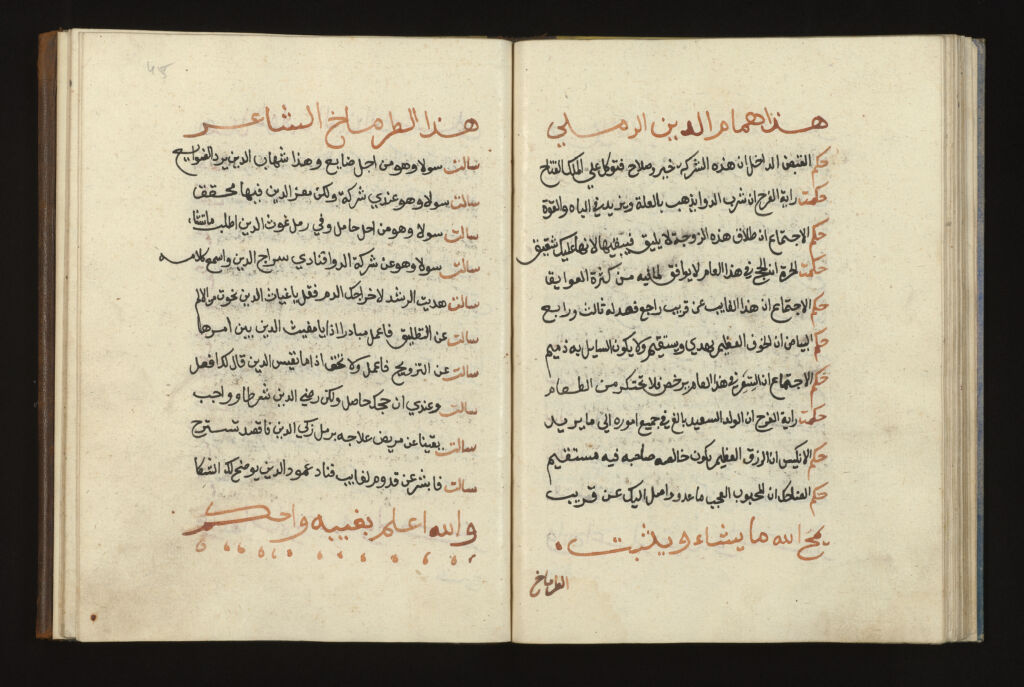 هذا همام الدين الرملي
حكم القبض الداخل ان هذه الشركة خير وصلاح فتوكل علي الملك الفتاح
حكمت راية الفرح ان شرب الدوا يذهب بالعلة ويزيد في الباه والقوة
حكم الاجتماع ان طلاق هذه الزوجة لا يليق فبقيها لانها عليك شفيق
حكمت الحمرة ان الحج في هذا العام لا يوافق لما فيه من كثرة العوايقا
حكم الاجتماع ان هذا الغايب عن قريب راجع فعد له ثالث ورابع
حكم البياض ان الخوف العظيم يهدي ويستقيم ولا يكون السايل به ذميم
حكم الاجتماع ان السعر في هذا العام يرخص فلا تحتكر من الطعام
حكمت راية الفرح ان الولد السعيد بالغ في جميع اموره الي ما يريد
حكم الانكيس ان الرزق العظيم يكون خالصه صاحبه فيه مستقيم
حكم الضاحك ان المحبوب العجيب ماعدو وامل اليك عن قريب
يمح الله ما يشاء ويثبت
الطرماخ
هذا الطرماخ الشاعر
سالت سولا وهو من اجل ضايع وهذا شهاب الدين يرد الضوايع
سالت سولا وهو عندي شركة ولكن معز الدين فيها محقق
سالت سولا وهو من اجل حامل وفي رمل غوث الدين اطلب ما تشا
سالت سولا وهو عن شركة الدوا فنادي سراج الدين واسمع كلامه
سالت هديت الرشد لاخراجك الدم فقل يا غياث الدين نحوت من الالم
سالت عن التطليق فاعمل مبادرا اذا يا مغيث الدين بين امرها
سالت عن التزويج فاعمل ولا تخف اذا ما نفيس الدين قال لك افعل
سالت وعندي ان حجك حاصل ولكن رضي الدين شرطا وواجب
سالت يقينا عن مريض علاجه برمل زكي الدين فاقصد تسترح
سالت فابشر عن قدوم لغايب فناد عمود الدين يوضح لك الشكا
والله اعلم بغيبه واحكم